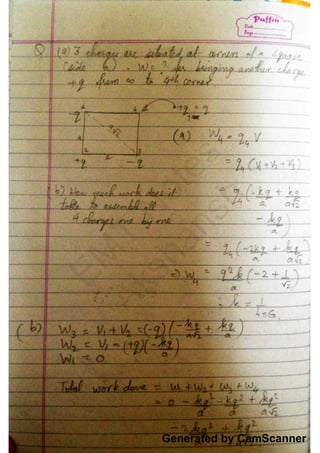 Puffin
Date
Page
Q. (a) 3 charges are situated at corners of a square
(side a). W = ? for bringing another charge
+q from ∞ to 4th corner
-q 4 +q = q₄
a a√2
+q a -q
(a) W₄ = q₄ V
= q₄ (V₁+V₂+V₃)
(b) How much work does it
take to assemble all
4 charges one by one
= q₄ (-kq/a + kq/a√2
- kq/a)
= q₄ (-2kq/a + kq/a√2)
⇒ W₄ = q²k/a (-2 + 1/√2)
∴ k = 1/4πε₀
(b) W₃ = V₁+V₂ = (-q) (-kq/a√2 + kq/a)
W₂ = V₁ = (+q)(-kq/a)
W₁ = 0
Total work done = W₁+W₂+W₃+W₄
= 0 - kq²/a - kq²/a + kq²/a√2
- 2kq²/a + kq²/a√2
Generated by CamScanner